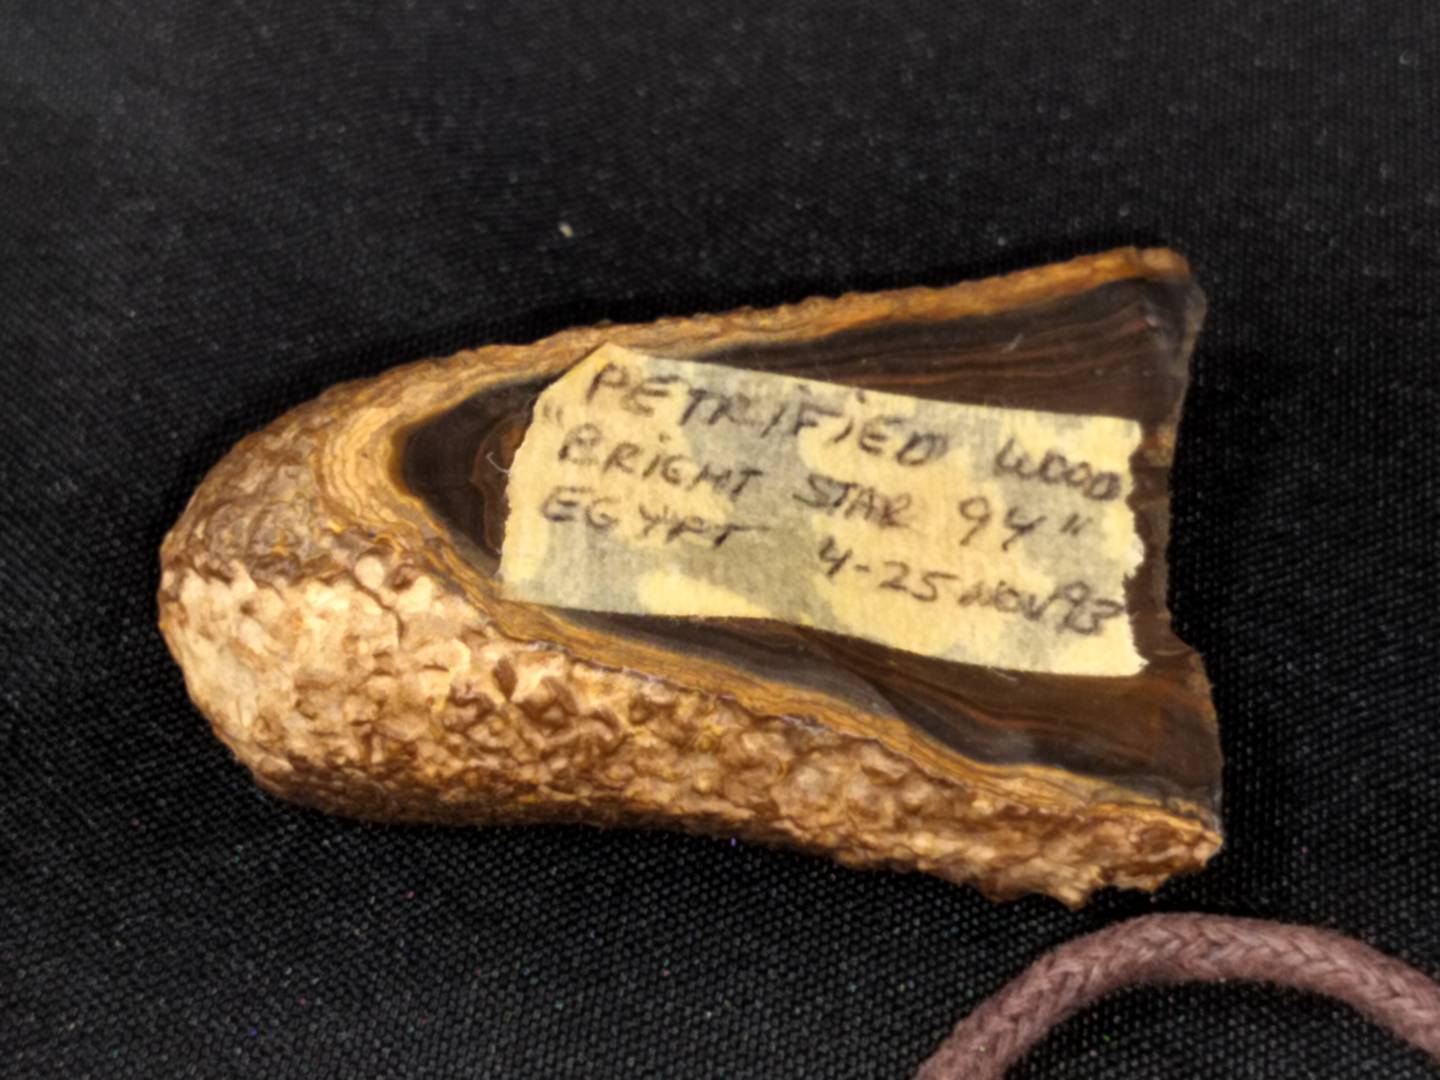 PETRiFiED WOOD
"BRiGHT STAR 94"
EGYPT 4-25 NOV 93